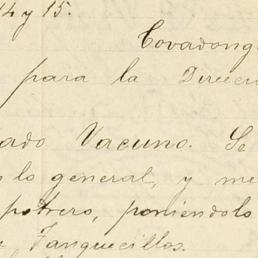 14 y 15.
Covadong
para la Direcc
ado Vacuno. Se
lo general, y me
potrero, poniendolo
Tanquecillos.